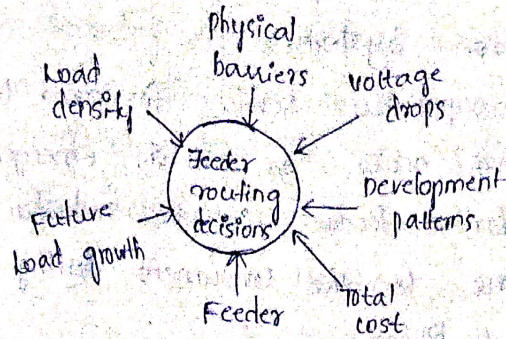 Physical
barriers
Load
density
Voltage
drops
Feeder
routing
decisions
Development
patterns
Future
Load growth
Feeder
Total
cost